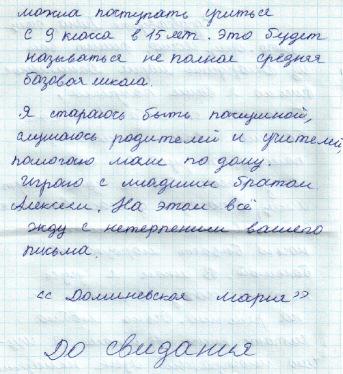 можна поступать учиться
с 9 класса в 15 лет. Это будет
называться не полная средняя
базовая школа.
Я стараюсь быть послушной,
слушаюсь родителей и учителей,
помогаю маме по дому.
Играю с младшим братом
Алексеем. На этом всё
жду с нетерпением вашего
письма.
<< Доминевская Мария >>
До свидания